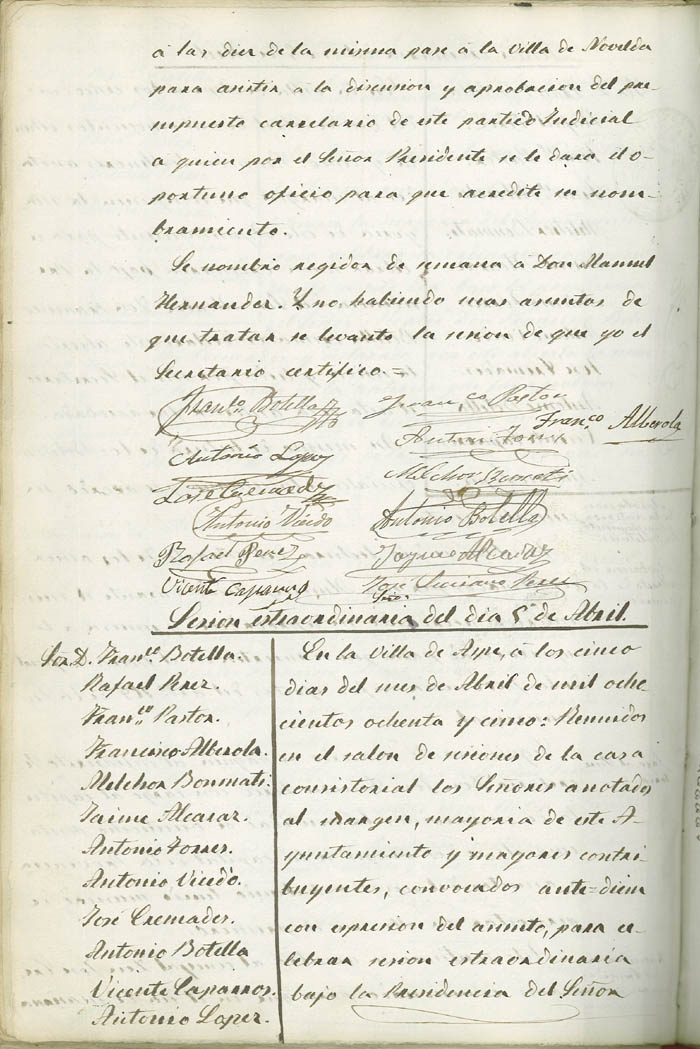 á las diez de la misma pase á la villa de Novelda
para asistir á la discusion y aprobacion del pre-
supuesto carcelario de este partido Judicial
a quien por el Señor Presidente se le dara el o-
portuno oficio para que acredite su nom-
bramiento.
Se nombró regidor de semana á Don Manuel
Hernandez. Y no habiendo mas asuntos de
que tratar se levantó la sesion de que yo el
Secretario certifico.=
Fran.co Botella
Franco Pastor
Franco Alberola
Antonio Lopez
Antonio Torres
José Cremades
Melchor Bonmati
Antonio Vicedo
Antonio Botella
Rafael Perez
Jayme Alcaraz
Vicente Caparros
José Luciano Perez
Srio.
Sesion estraordinaria del dia 5 de Abril.
Sor. D. Fran.co Botella
Rafael Perez.
Fran.co Pastor.
Francisco Alberola.
Melchor Bonmati.
Jaime Alcaraz.
Antonio Torres.
Antonio Vicedo.
José Cremades.
Antonio Botella
Vicente Caparros.
Antonio Lopez.
En la Villa de Aspe, á los cinco
dias del mes de Abril de mil ocho-
cientos ochenta y cinco: Reunidos
en el salon de sesiones de la casa
consistorial los Señores anotados
al margen, mayoria de este A-
yuntamiento y mayores contri-
buyentes, convocados ante=diem
con espresion del asunto, para ce-
lebrar sesion estraordinaria
bajo la Presidencia del Señor